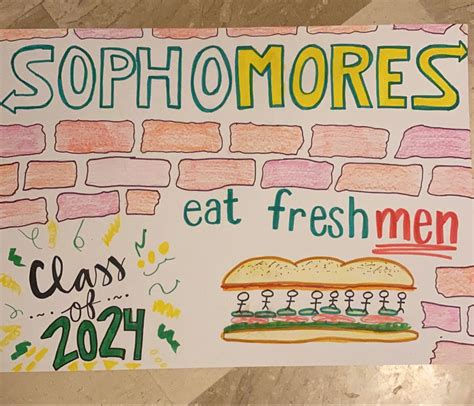 SOPHOMORES
eat freshmen
Class
of
2024